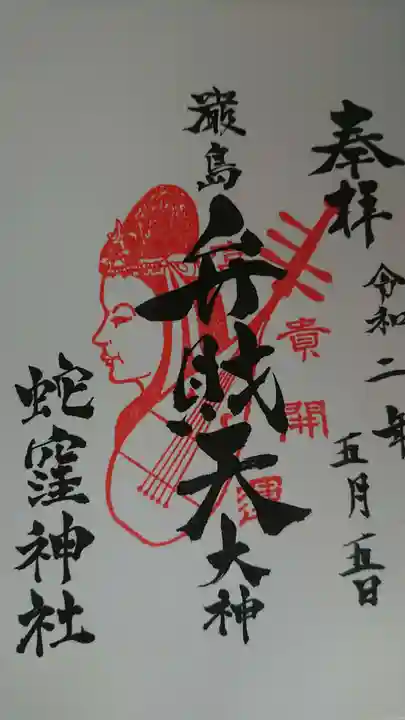 奉拝
令和二年
五月五日
厳島
弁財天
大神
蛇窪神社
開運